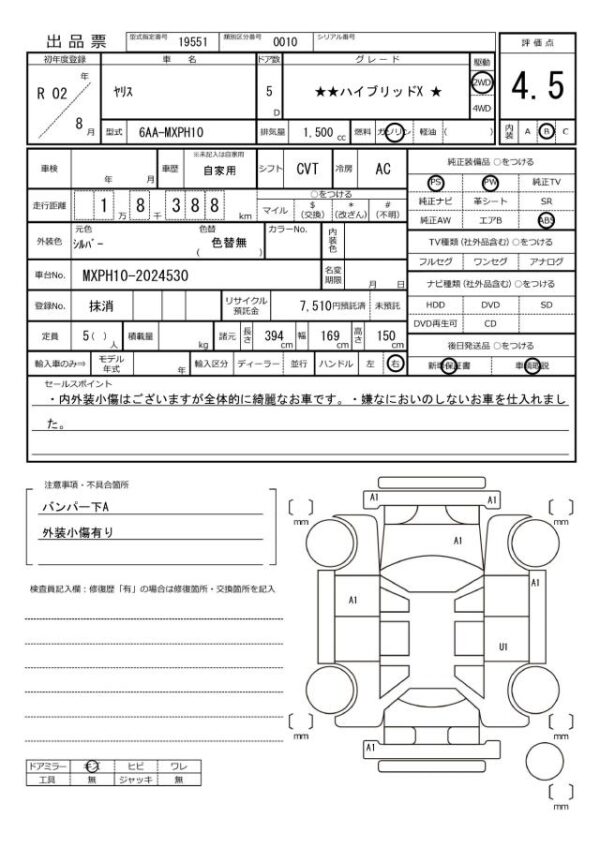 出品票 型式指定番号 19551 類別区分番号 0010 シリアル番号
初年度登録 車名 ドア数 グレード 駆動 評価点
R 02 年 8 月 ヤリス 5 D ★★ハイブリッドX ★ 2WD 4WD 4.5
型式 6AA-MXPH10 排気量 1,500 cc 燃料 ガソリン 軽油 ( ) 内装 A B C
車検 年 月 車歴 ※未記入は自家用 自家用 シフト CVT 冷房 AC
走行距離 1 万 8 千 3 8 8 km ○をつける
マイル $ (交換) * (改ざん) # (不明)
外装色 元色 シルバー 色替 色替無 ( ) カラーNo. 内装色
車台No. MXPH10-2024530 名変期限 月 日
登録No. 抹消 リサイクル預託金 7,510円預託済 未預託
定員 5 ( ) 人 積載量 kg 諸元 長さ 394 cm 幅 169 cm 高さ 150 cm
輸入車のみ⇒ モデル年式 年 輸入区分 ディーラー 並行 ハンドル 左 右
純正装備品 ○をつける
PS PW 純正TV
純正ナビ 革シート SR
純正AW エアB ABS
TV種類 (社外品含む) ○をつける
フルセグ ワンセグ アナログ
ナビ種類 (社外品含む) ○をつける
HDD DVD SD
DVD再生可 CD
後日発送品 ○をつける
新車保証書 車輌取説
セールスポイント
・内外装小傷はございますが全体的に綺麗なお車です。・嫌なにおいのしないお車を仕入れまし
た。
注意事項・不具合箇所
バンパー下A
外装小傷有り
検査員記入欄：修復歴「有」の場合は修復箇所・交換箇所を記入
ドアミラー キズ ヒビ ワレ
工具 無 ジャッキ 無
[ ] mm
A1
A1
[ ] mm
A1
A1
A1
U1
[ ] mm
A1
[ ] mm
[ ] mm